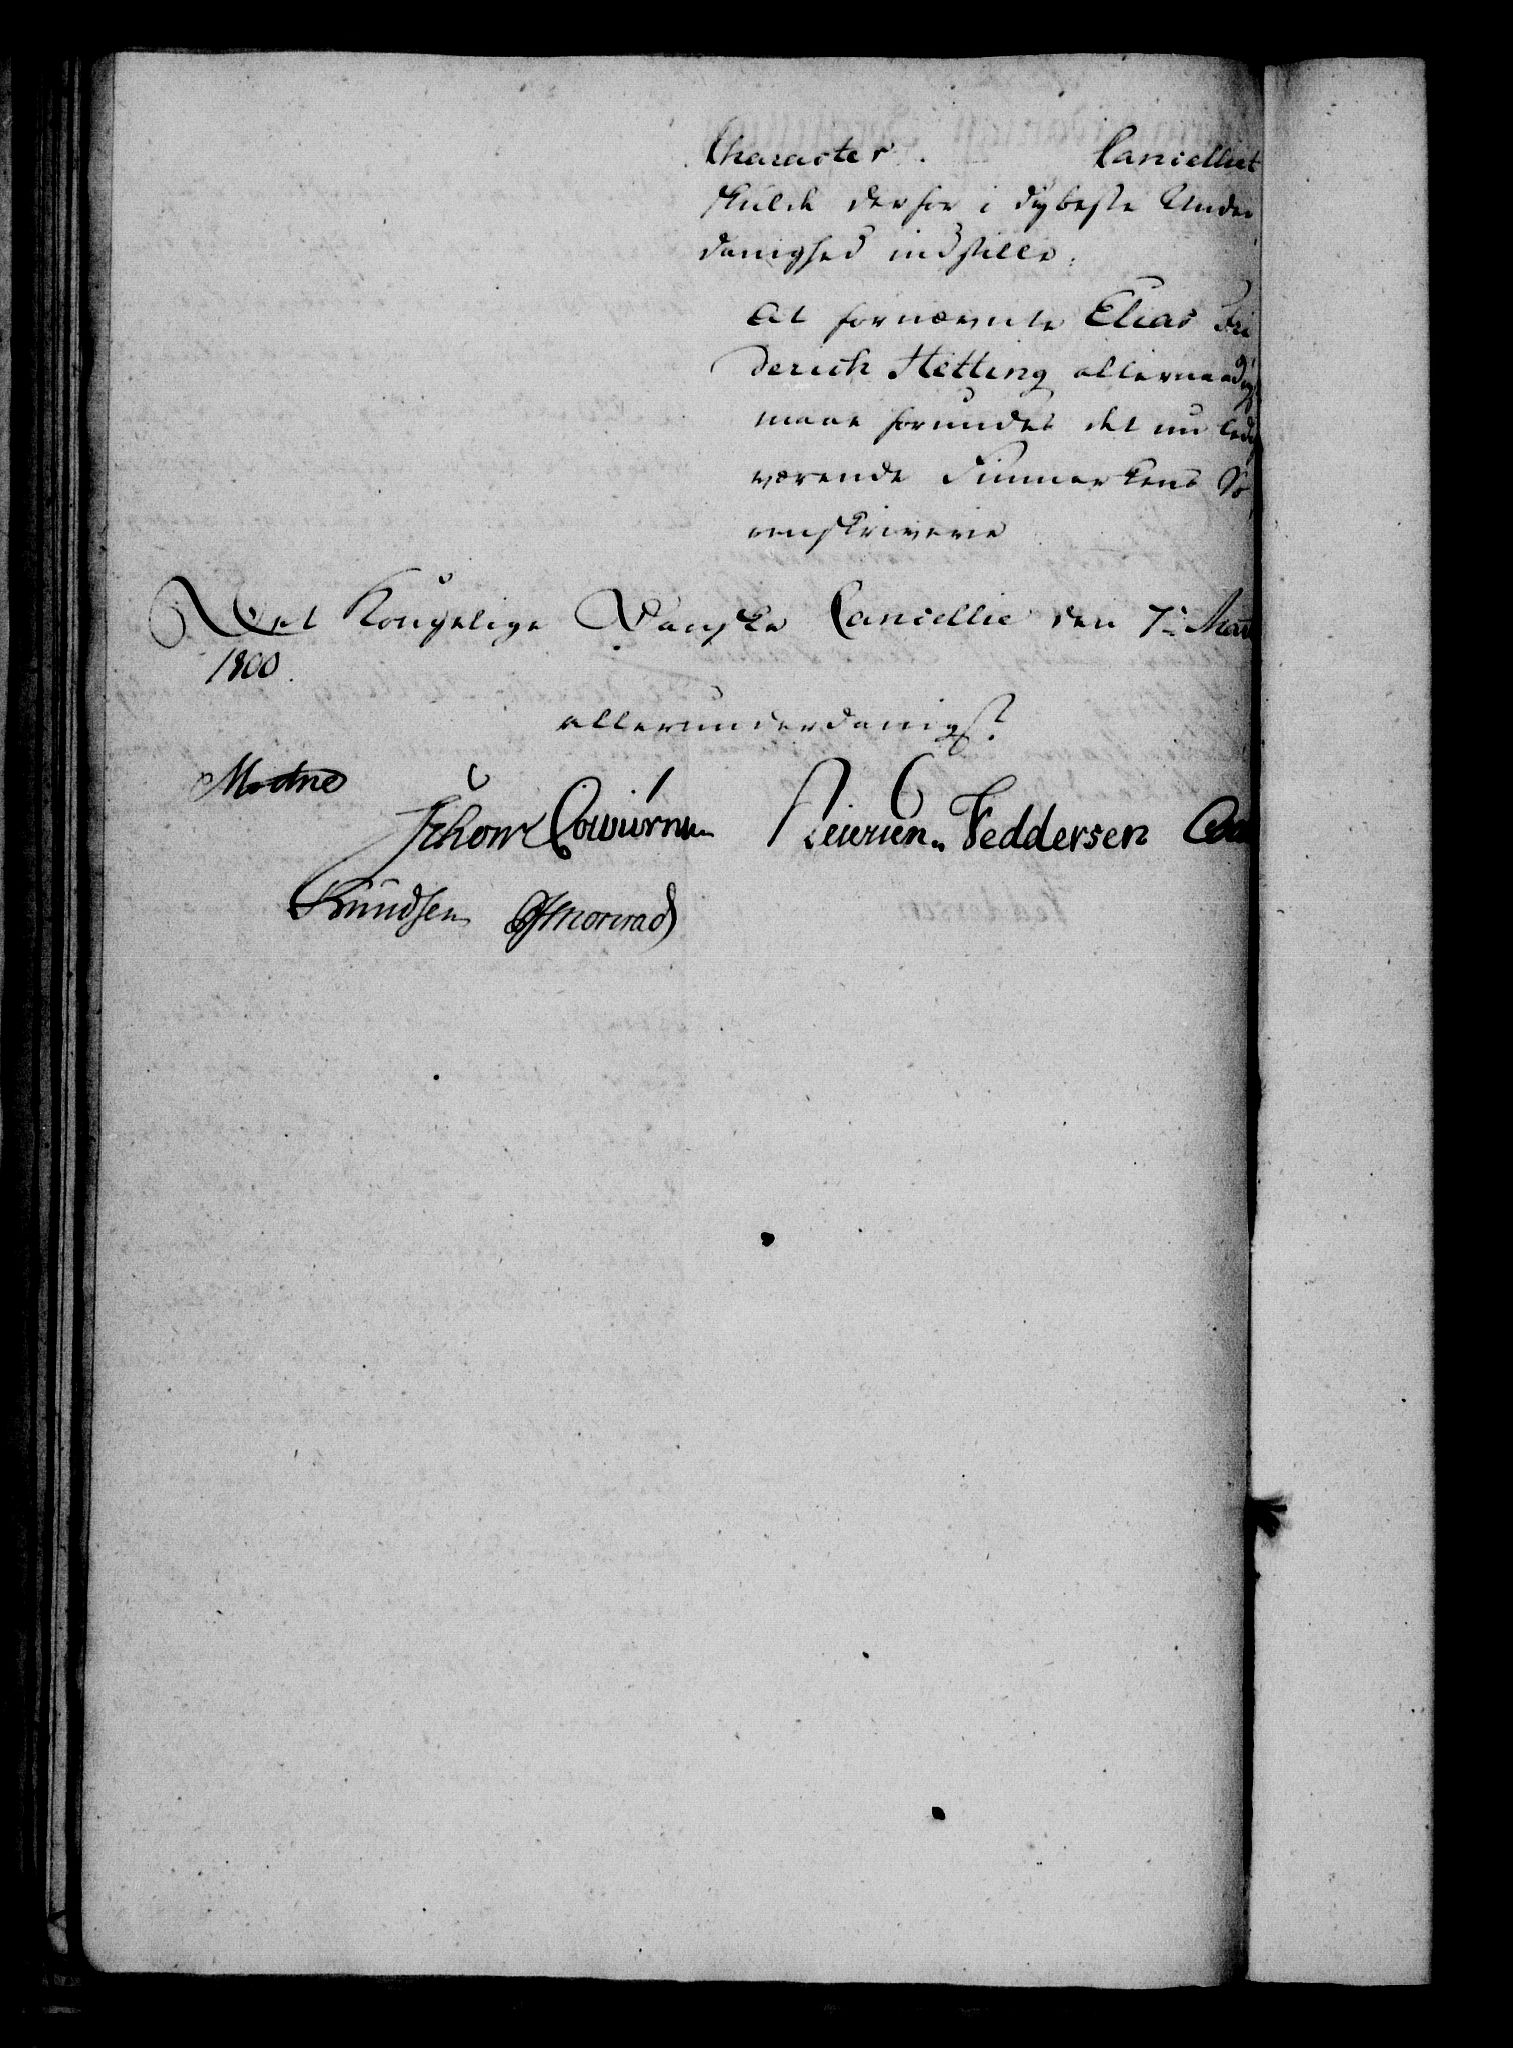 Character. Cancelliet
skulde derfor i dybeste Under
danighed indstille:
At fornævnte Elias Fri
derich Hetting allernaadigst
maae forundes det nu ledig
værende Finmarkens So
renskriverie
Det Kongelige Danske Cancellie den 7de Mar
1800.
allerunderdanigst
Moltke
Schow Colbiørnsen Reiersen. Feddersen
Knudsen Monrad